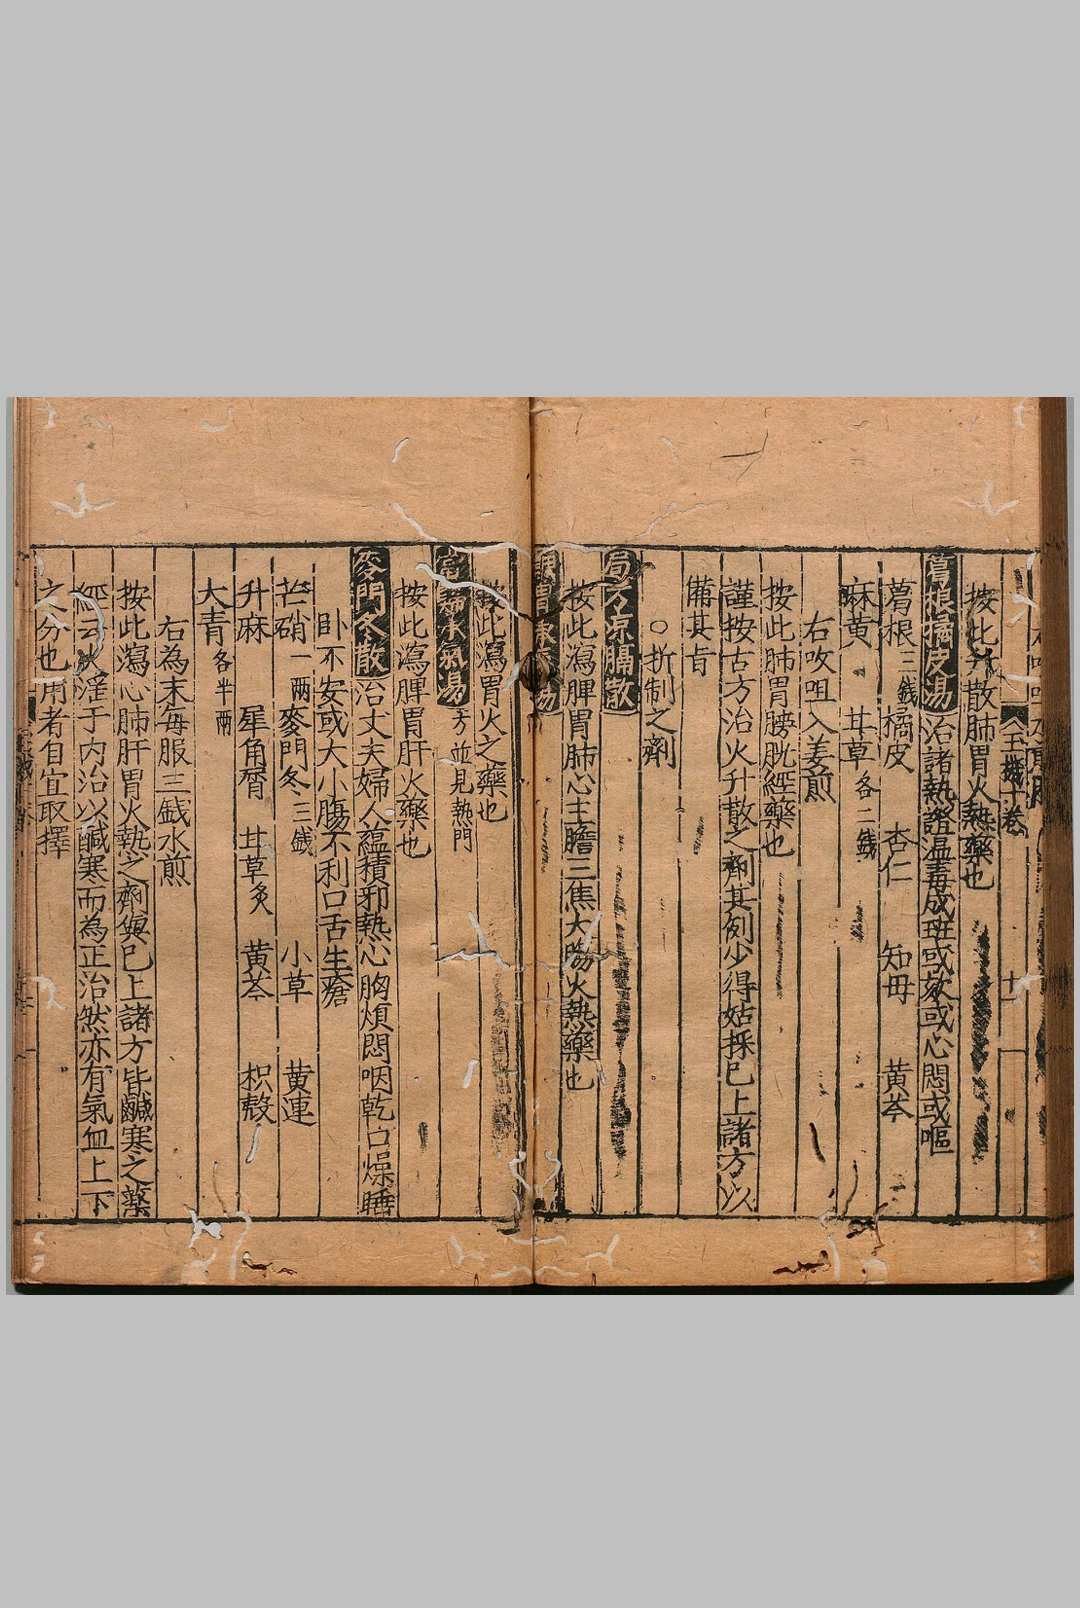 玉機十卷
十一
按此升散肺胃火熱藥也
葛根橘皮湯治諸熱證溫毒成班或欬或心悶或嘔
葛根二錢 橘皮 杏仁 知母 黃芩
麻黃 甘草各二錢
右㕮咀入姜煎
按此肺胃膀胱經藥也
謹按古方治火升散之劑其例少得姑採已上諸方以
備其旨
○折制之劑
局方凉膈散
按此瀉脾胃肺心主膽三焦大腸火熱藥也
調胃承氣湯
按此瀉胃火之藥也
承氣湯方並見熱門
按此瀉脾胃肝火藥也
麥門冬散治丈夫婦人蘊積邪熱心胸煩悶咽乾口燥睡
卧不安或大小腸不利口舌生瘡
芒硝一兩 麥門冬三錢 小草 黃連
升麻 犀角屑 甘草炙 黃芩 枳殼
大青各半兩
右為末每服三錢水煎
按此瀉心肺肝胃火熱之劑與已上諸方皆鹹寒之藥
經云火淫于内治以鹹寒而為正治然亦有氣血上下
之分也用者自宜取擇